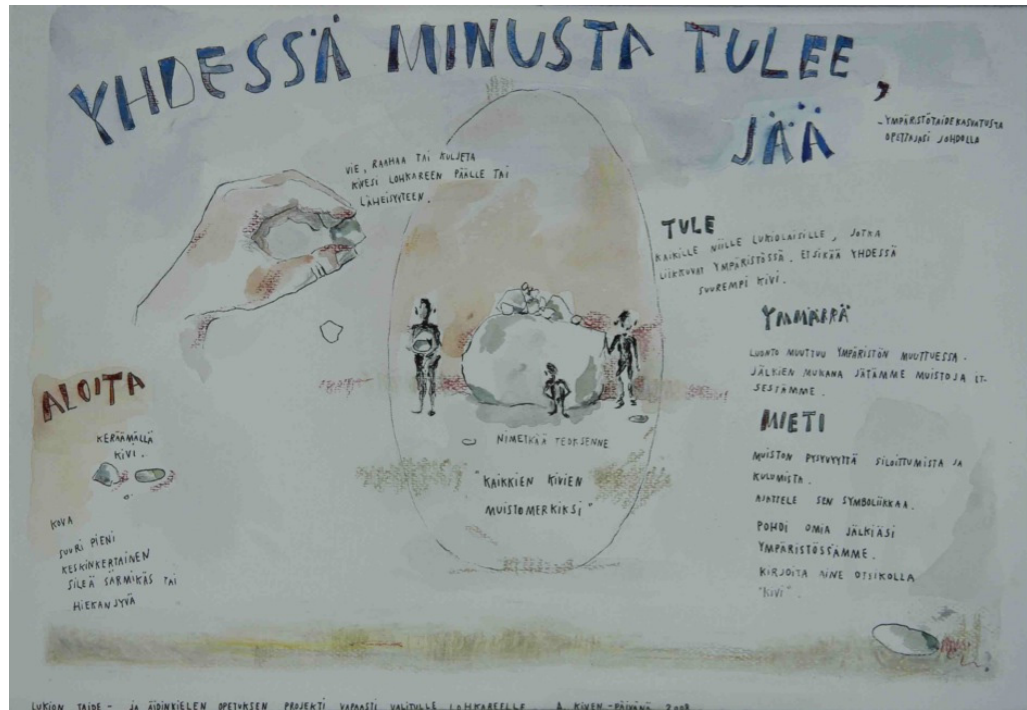 YHDESSÄ MINUSTA TULEE,
JÄÄ
-YMPÄRISTÖTAIDEKASVATUSTA
OPETTAJASI JOHDOLLA
VIE, RAAHAA TAI KULJETA
KIVESI LOHKAREEN PÄÄLLE TAI
LÄHEISYYTEEN.
TULE
KAIKILLE NIILLE LUKIOLAISILLE, JOTKA
LIIKKUVAT YMPÄRISTÖSSÄ. ETSIKÄÄ YHDESSÄ
SUUREMPI KIVI.
YMMÄRRÄ
LUONTO MUUTTUU YMPÄRISTÖN MUUTTUESSA.
JÄLKIEN MUKANA JÄTÄMME MUISTOJA IT-
SESTÄMME.
MIETI
MUISTON PYSYVYYTTÄ SILOITTUMISTA JA
KULUMISTA.
AJATTELE SEN SYMBOLIIKKAA.
POHDI OMIA JÄLKIÄSI
YMPÄRISTÖSSÄMME.
KIRJOITA AINE OTSIKOLLA
"KIVI".
ALOITA
KERÄÄMÄLLÄ
KIVI.
KOVA
SUURI PIENI
KESKINKERTAINEN
SILEÄ SÄRMIKÄS TAI
HIEKANJYVÄ
NIMETKÄÄ TEOKSENNE
"KAIKKIEN KIVIEN
MUISTOMERKIKSI"
LUKION TAIDE- JA ÄIDINKIELEN OPETUKSEN PROJEKTI VAPAASTI VALITULLE LOHKAREELLE A. KIVEN-PÄIVÄNÄ